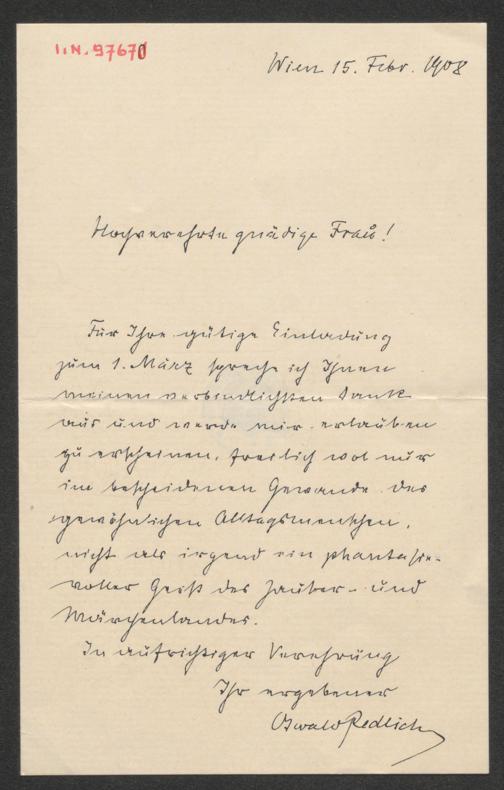 I.N. 97670
Wien 15. Febr. 1908
Hochverehrte gnädige Frau!
Für Ihre gütige Einladung
zum 1. März spreche ich Ihnen
meinen verbindlichsten Dank
aus und werde mir erlauben
zu erscheinen, freilich wol nur
im bescheidenen Gewande des
gewöhnlichen Alltagsmenschen,
nicht als irgend ein phantasie-
voller Geist des Zauber- und
Märchenlandes.
In aufrichtiger Verehrung
Ihr ergebener
Oswald Redlich